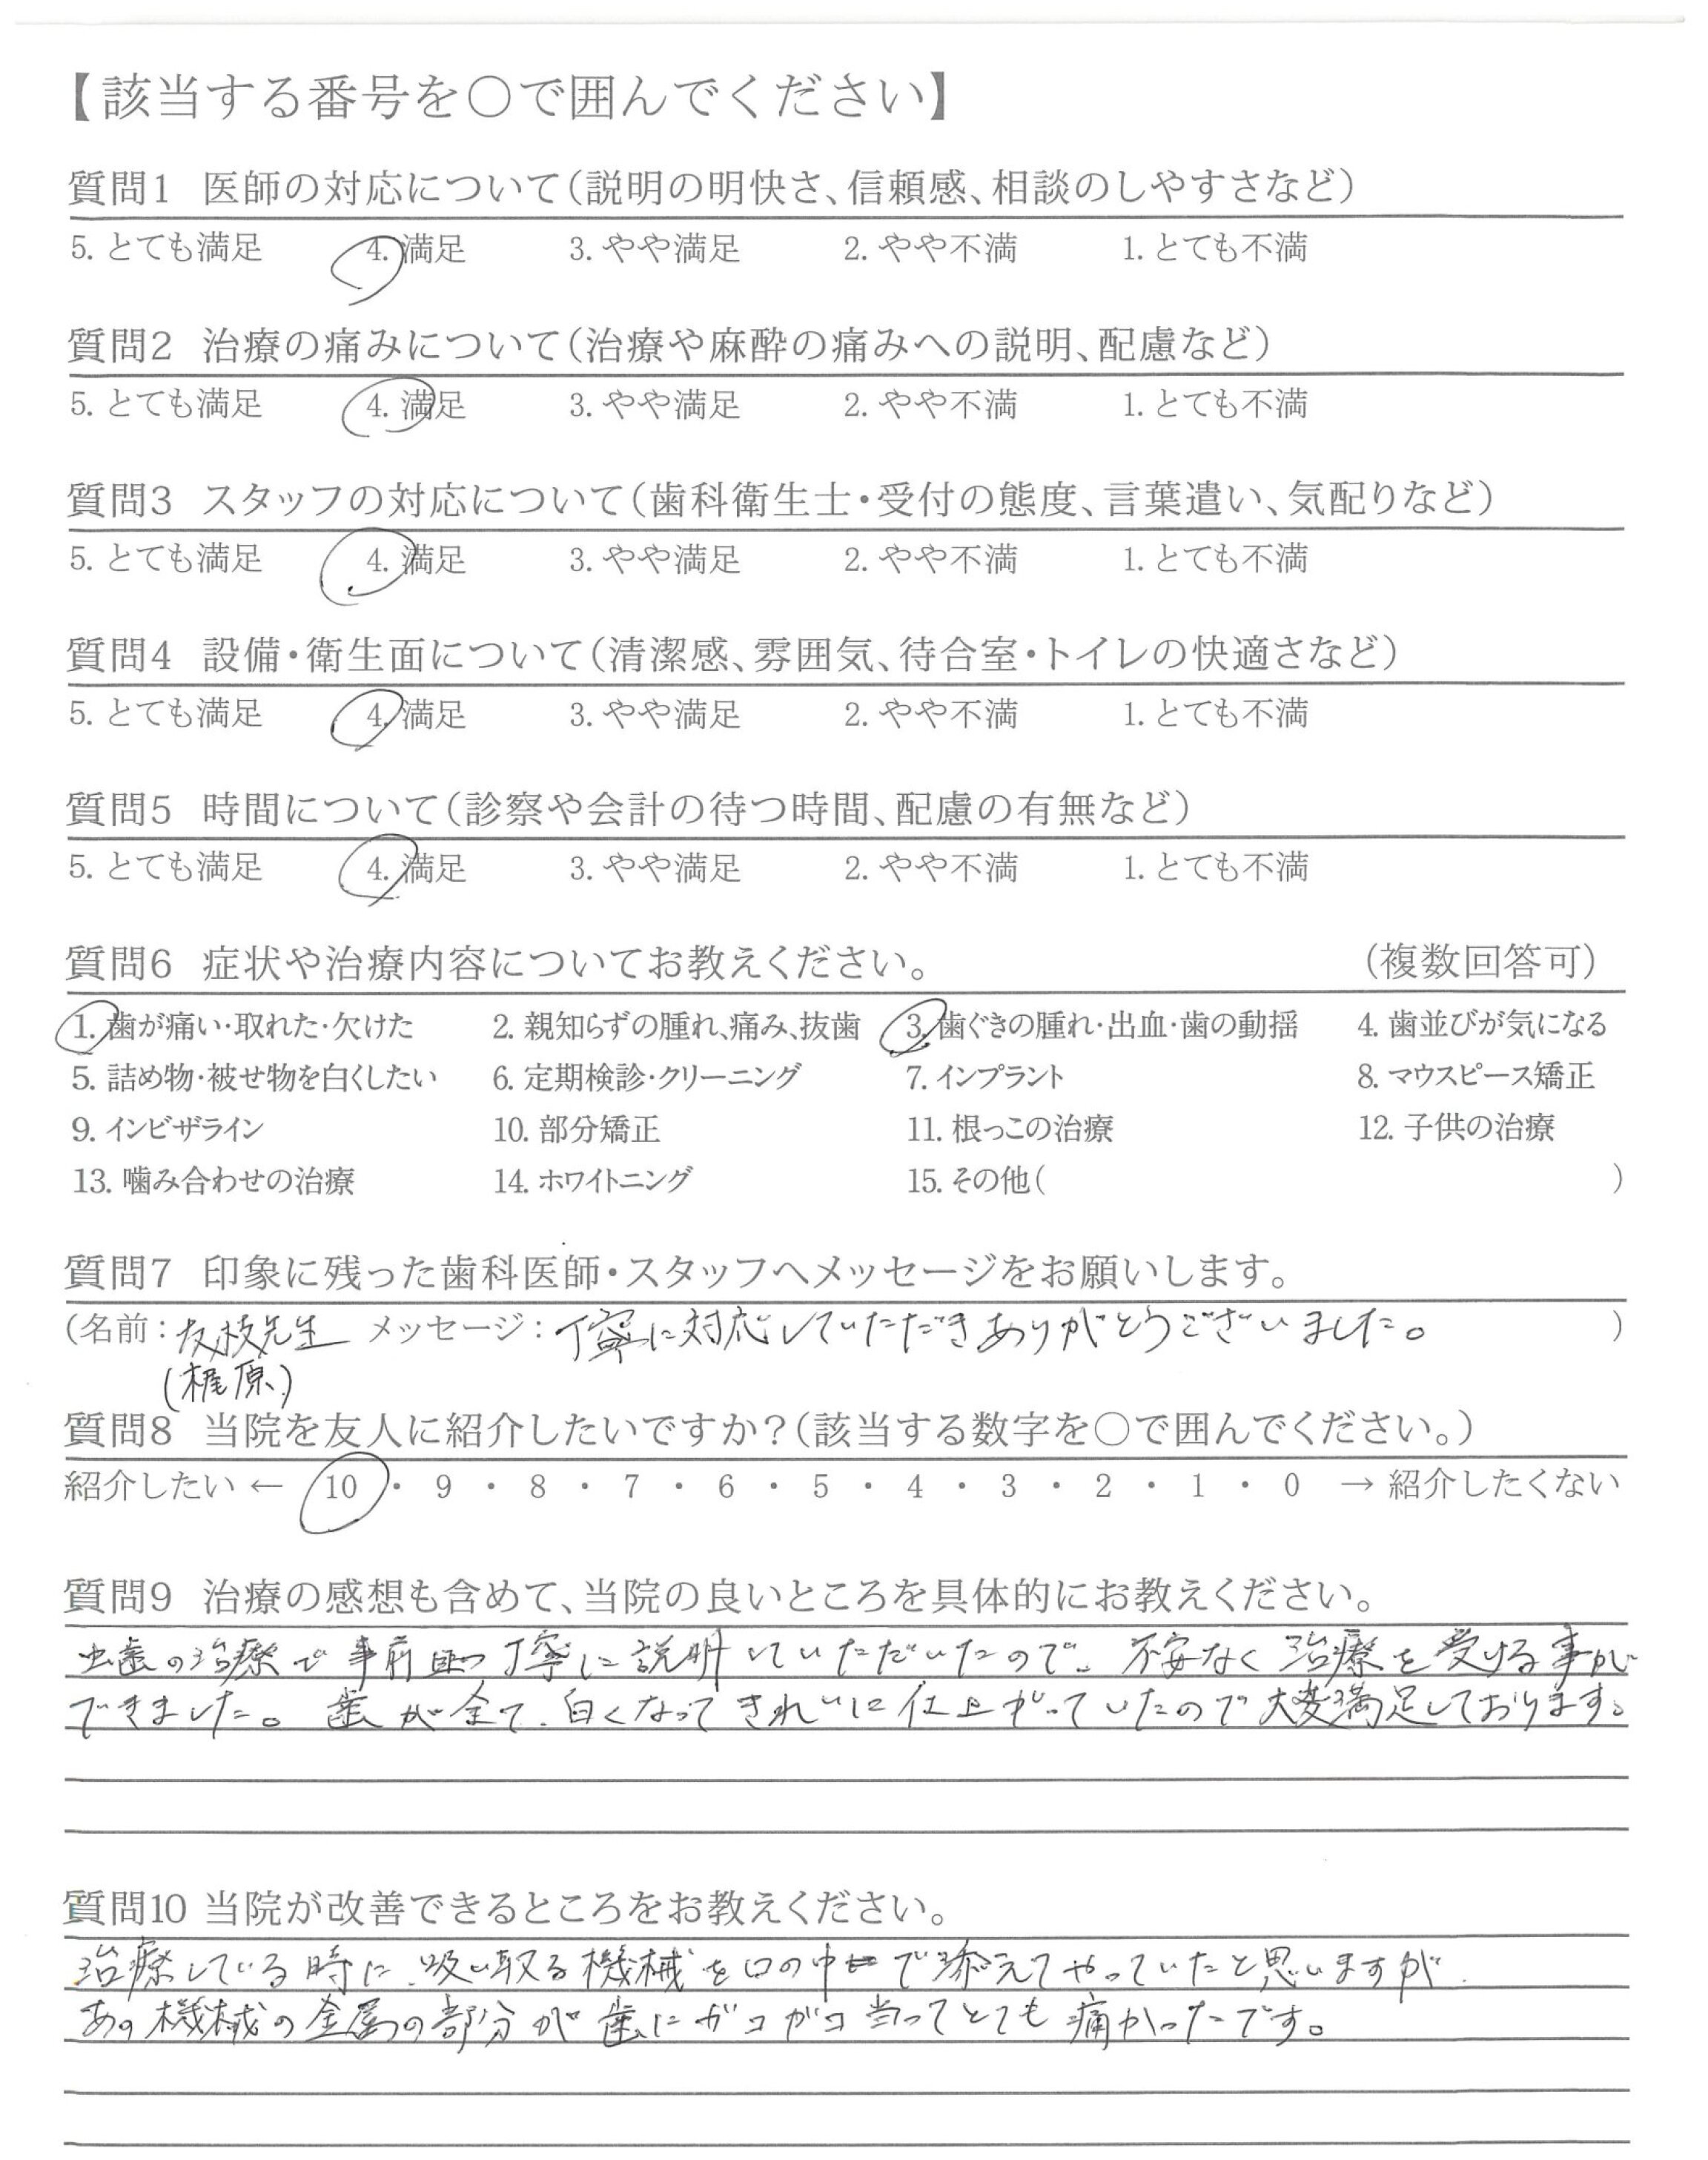 【該当する番号を○で囲んでください】
質問1 医師の対応について(説明の明快さ、信頼感、相談のしやすさなど)
5. とても満足 4. 満足 3. やや満足 2. やや不満 1. とても不満
質問2 治療の痛みについて(治療や麻酔の痛みへの説明、配慮など)
5. とても満足 4. 満足 3. やや満足 2. やや不満 1. とても不満
質問3 スタッフの対応について(歯科衛生士・受付の態度、言葉遣い、気配りなど)
5. とても満足 4. 満足 3. やや満足 2. やや不満 1. とても不満
質問4 設備・衛生面について(清潔感、雰囲気、待合室・トイレの快適さなど)
5. とても満足 4. 満足 3. やや満足 2. やや不満 1. とても不満
質問5 時間について(診察や会計の待つ時間、配慮の有無など)
5. とても満足 4. 満足 3. やや満足 2. やや不満 1. とても不満
質問6 症状や治療内容についてお教えください。 (複数回答可)
1. 歯が痛い・取れた・欠けた 2. 親知らずの腫れ、痛み、抜歯 3. 歯ぐきの腫れ・出血・歯の動揺 4. 歯並びが気になる
5. 詰め物・被せ物を白くしたい 6. 定期検診・クリーニング 7. インプラント 8. マウスピース矯正
9. インビザライン 10. 部分矯正 11. 根っこの治療 12. 子供の治療
13. 噛み合わせの治療 14. ホワイトニング 15. その他( )
質問7 印象に残った歯科医師・スタッフへメッセージをお願いします。
(名前:友枝先生 メッセージ:丁寧に対応していただきありがとうございました。 )
(梶原)
質問8 当院を友人に紹介したいですか?(該当する数字を○で囲んでください。)
紹介したい ← 10 ・ 9 ・ 8 ・ 7 ・ 6 ・ 5 ・ 4 ・ 3 ・ 2 ・ 1 ・ 0 → 紹介したくない
質問9 治療の感想も含めて、当院の良いところを具体的にお教えください。
虫歯の治療で事前且つ丁寧に説明していただいたので、不安なく治療を受ける事が
できました。歯が全て、白くなってきれいに仕上がっていたので大変満足しております。
質問10 当院が改善できるところをお教えください。
治療している時に、吸い取る機械を口の中で添えてやっていたと思いますが、
あの機械の金属の部分が歯にガコガコ当ってとても痛かったです。